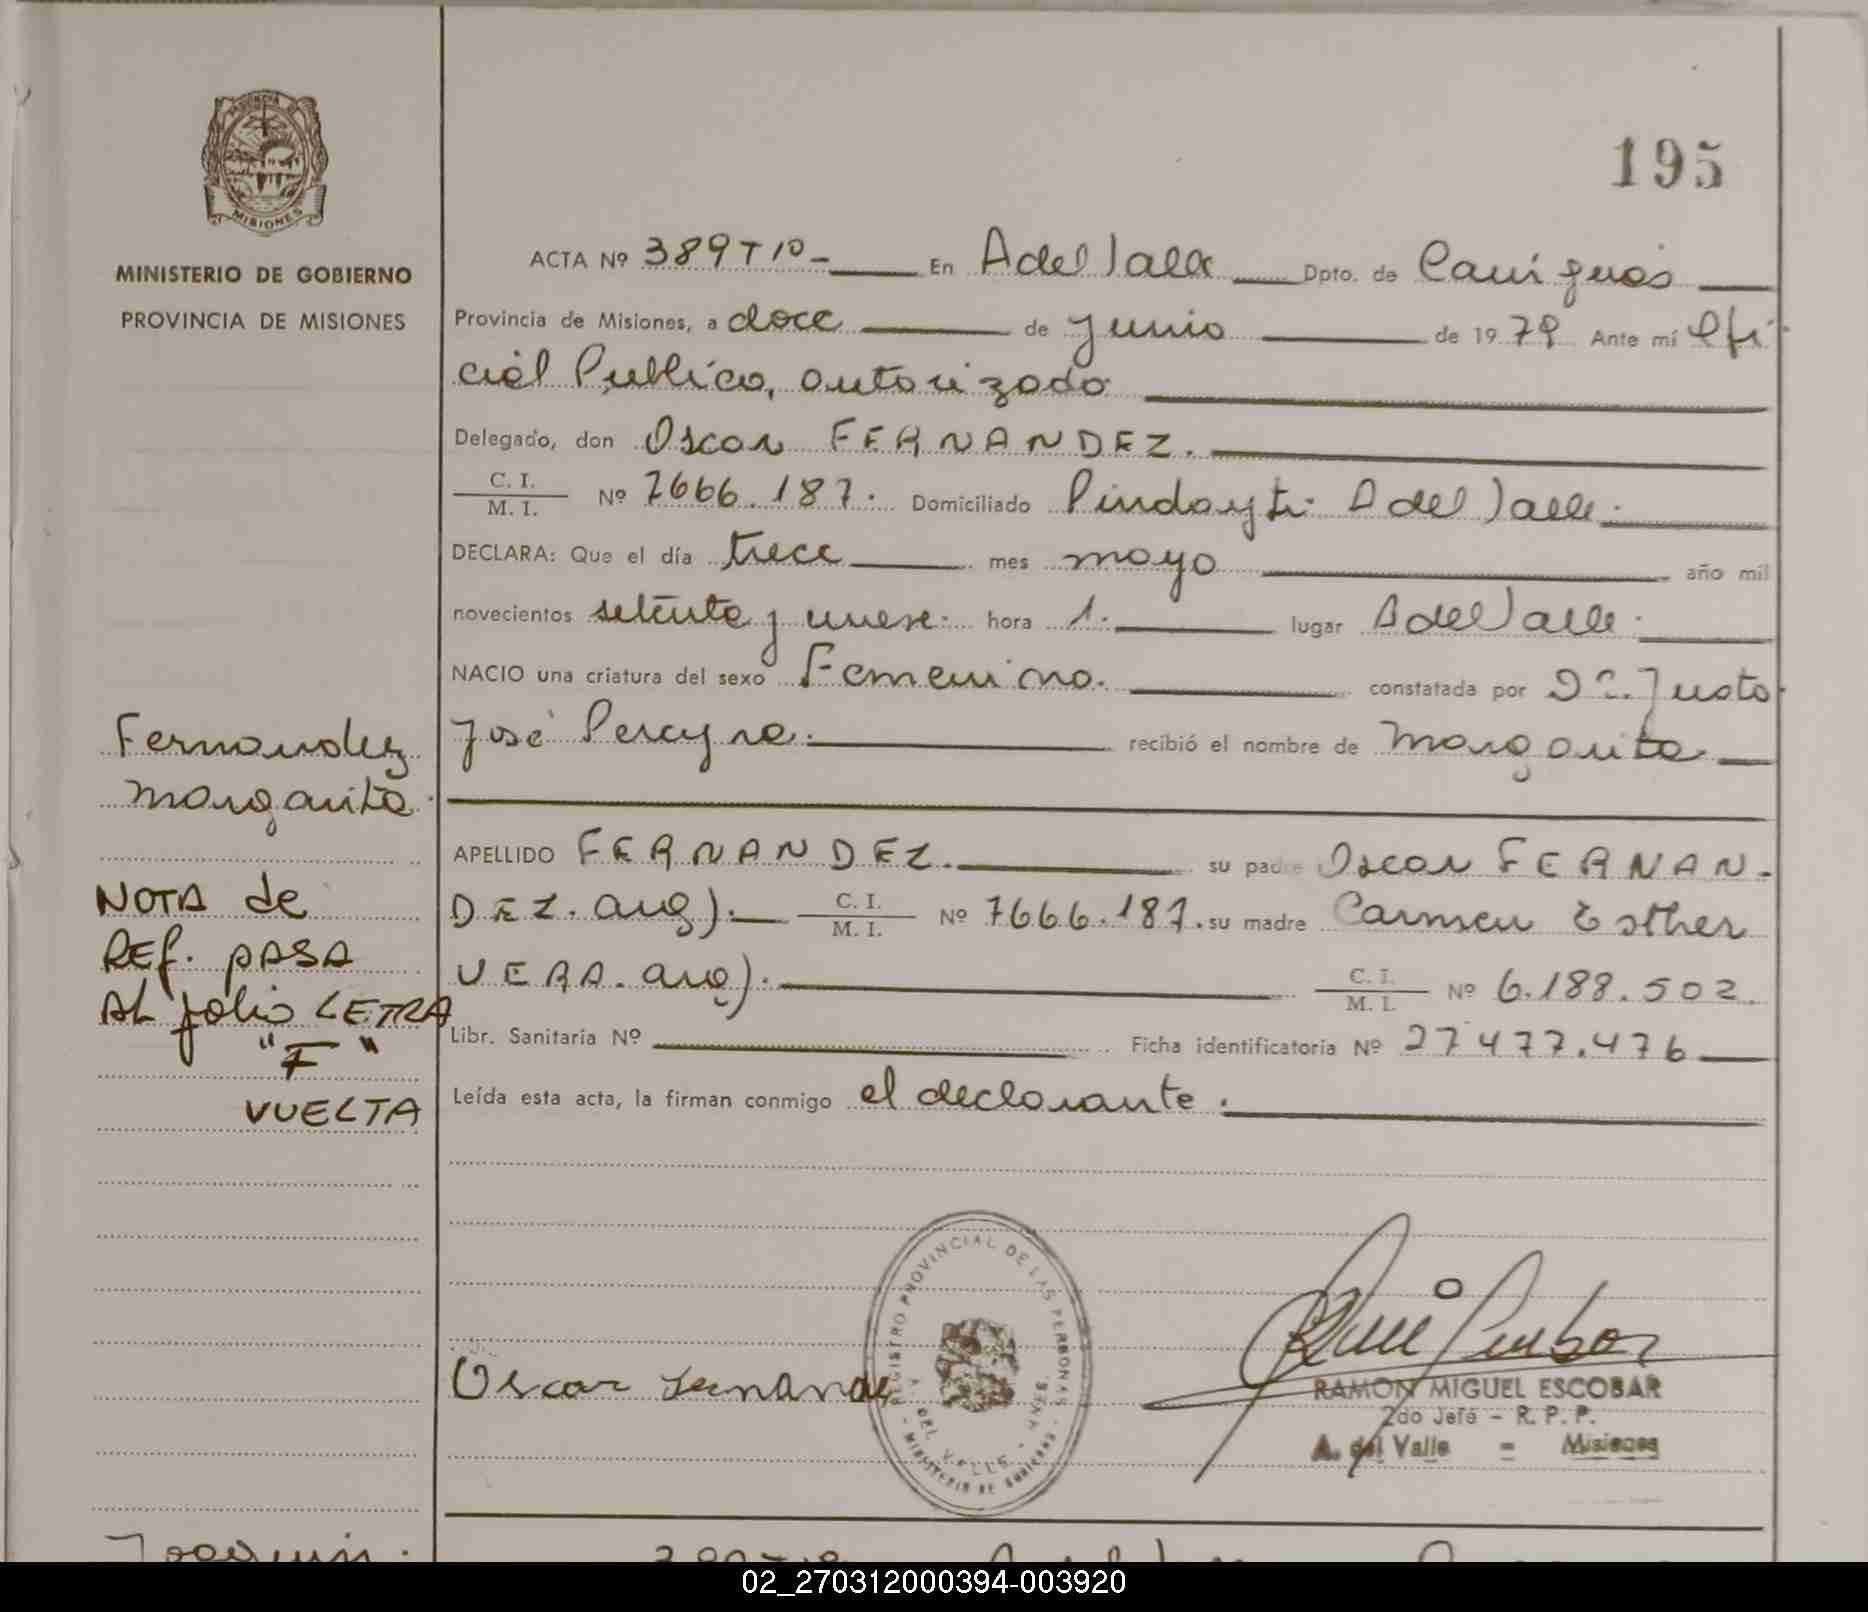 195
PROVINCIA DE
MISIONES
MINISTERIO DE GOBIERNO
PROVINCIA DE MISIONES
ACTA Nº 389 T 1º - En A del Valle Dpto. de Cainguás
Provincia de Misiones, a doce de junio de 1979 Ante mí Ofi
cial Publico, autorizado
Delegado, don Oscar FERNANDEZ.
C. I.
M. I. Nº 7666.187. Domiciliado Pindayti A del Valle.
DECLARA: Que el día trece mes mayo año mil
novecientos setenta y nueve. hora 1. lugar A del Valle.
NACIO una criatura del sexo Femenino. constatada por Dº. Justo
José Pereyra. recibió el nombre de Margarita
Fernandez
Margarita.
APELLIDO FERNANDEZ. su padre Oscar FERNAN-
DEZ. arg). C. I.
M. I. Nº 7666.187. su madre Carmen Esther
VERA. arg). C. I.
M. I. Nº 6.188.502.
Libr. Sanitaria Nº Ficha identificatoria Nº 27477.476
Leída esta acta, la firman conmigo el declarante.
NOTA de
REF. PASA
AL folio LETRA
"F"
VUELTA
REGISTRO PROVINCIAL DE LAS PERSONAS
MINISTERIO DE GOBIERNO
A. DEL VALLE
Oscar Fernandez
RAMON MIGUEL ESCOBAR
2do Jefe - R. P. P.
A. del Valle = Misiones
Joaquin.
02_270312000394-003920